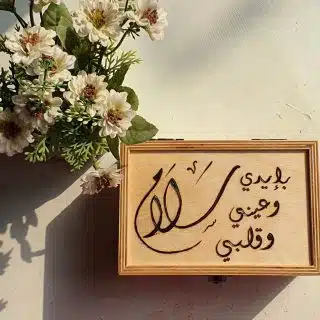 بإيدي
سلام وعيني
وقلبي